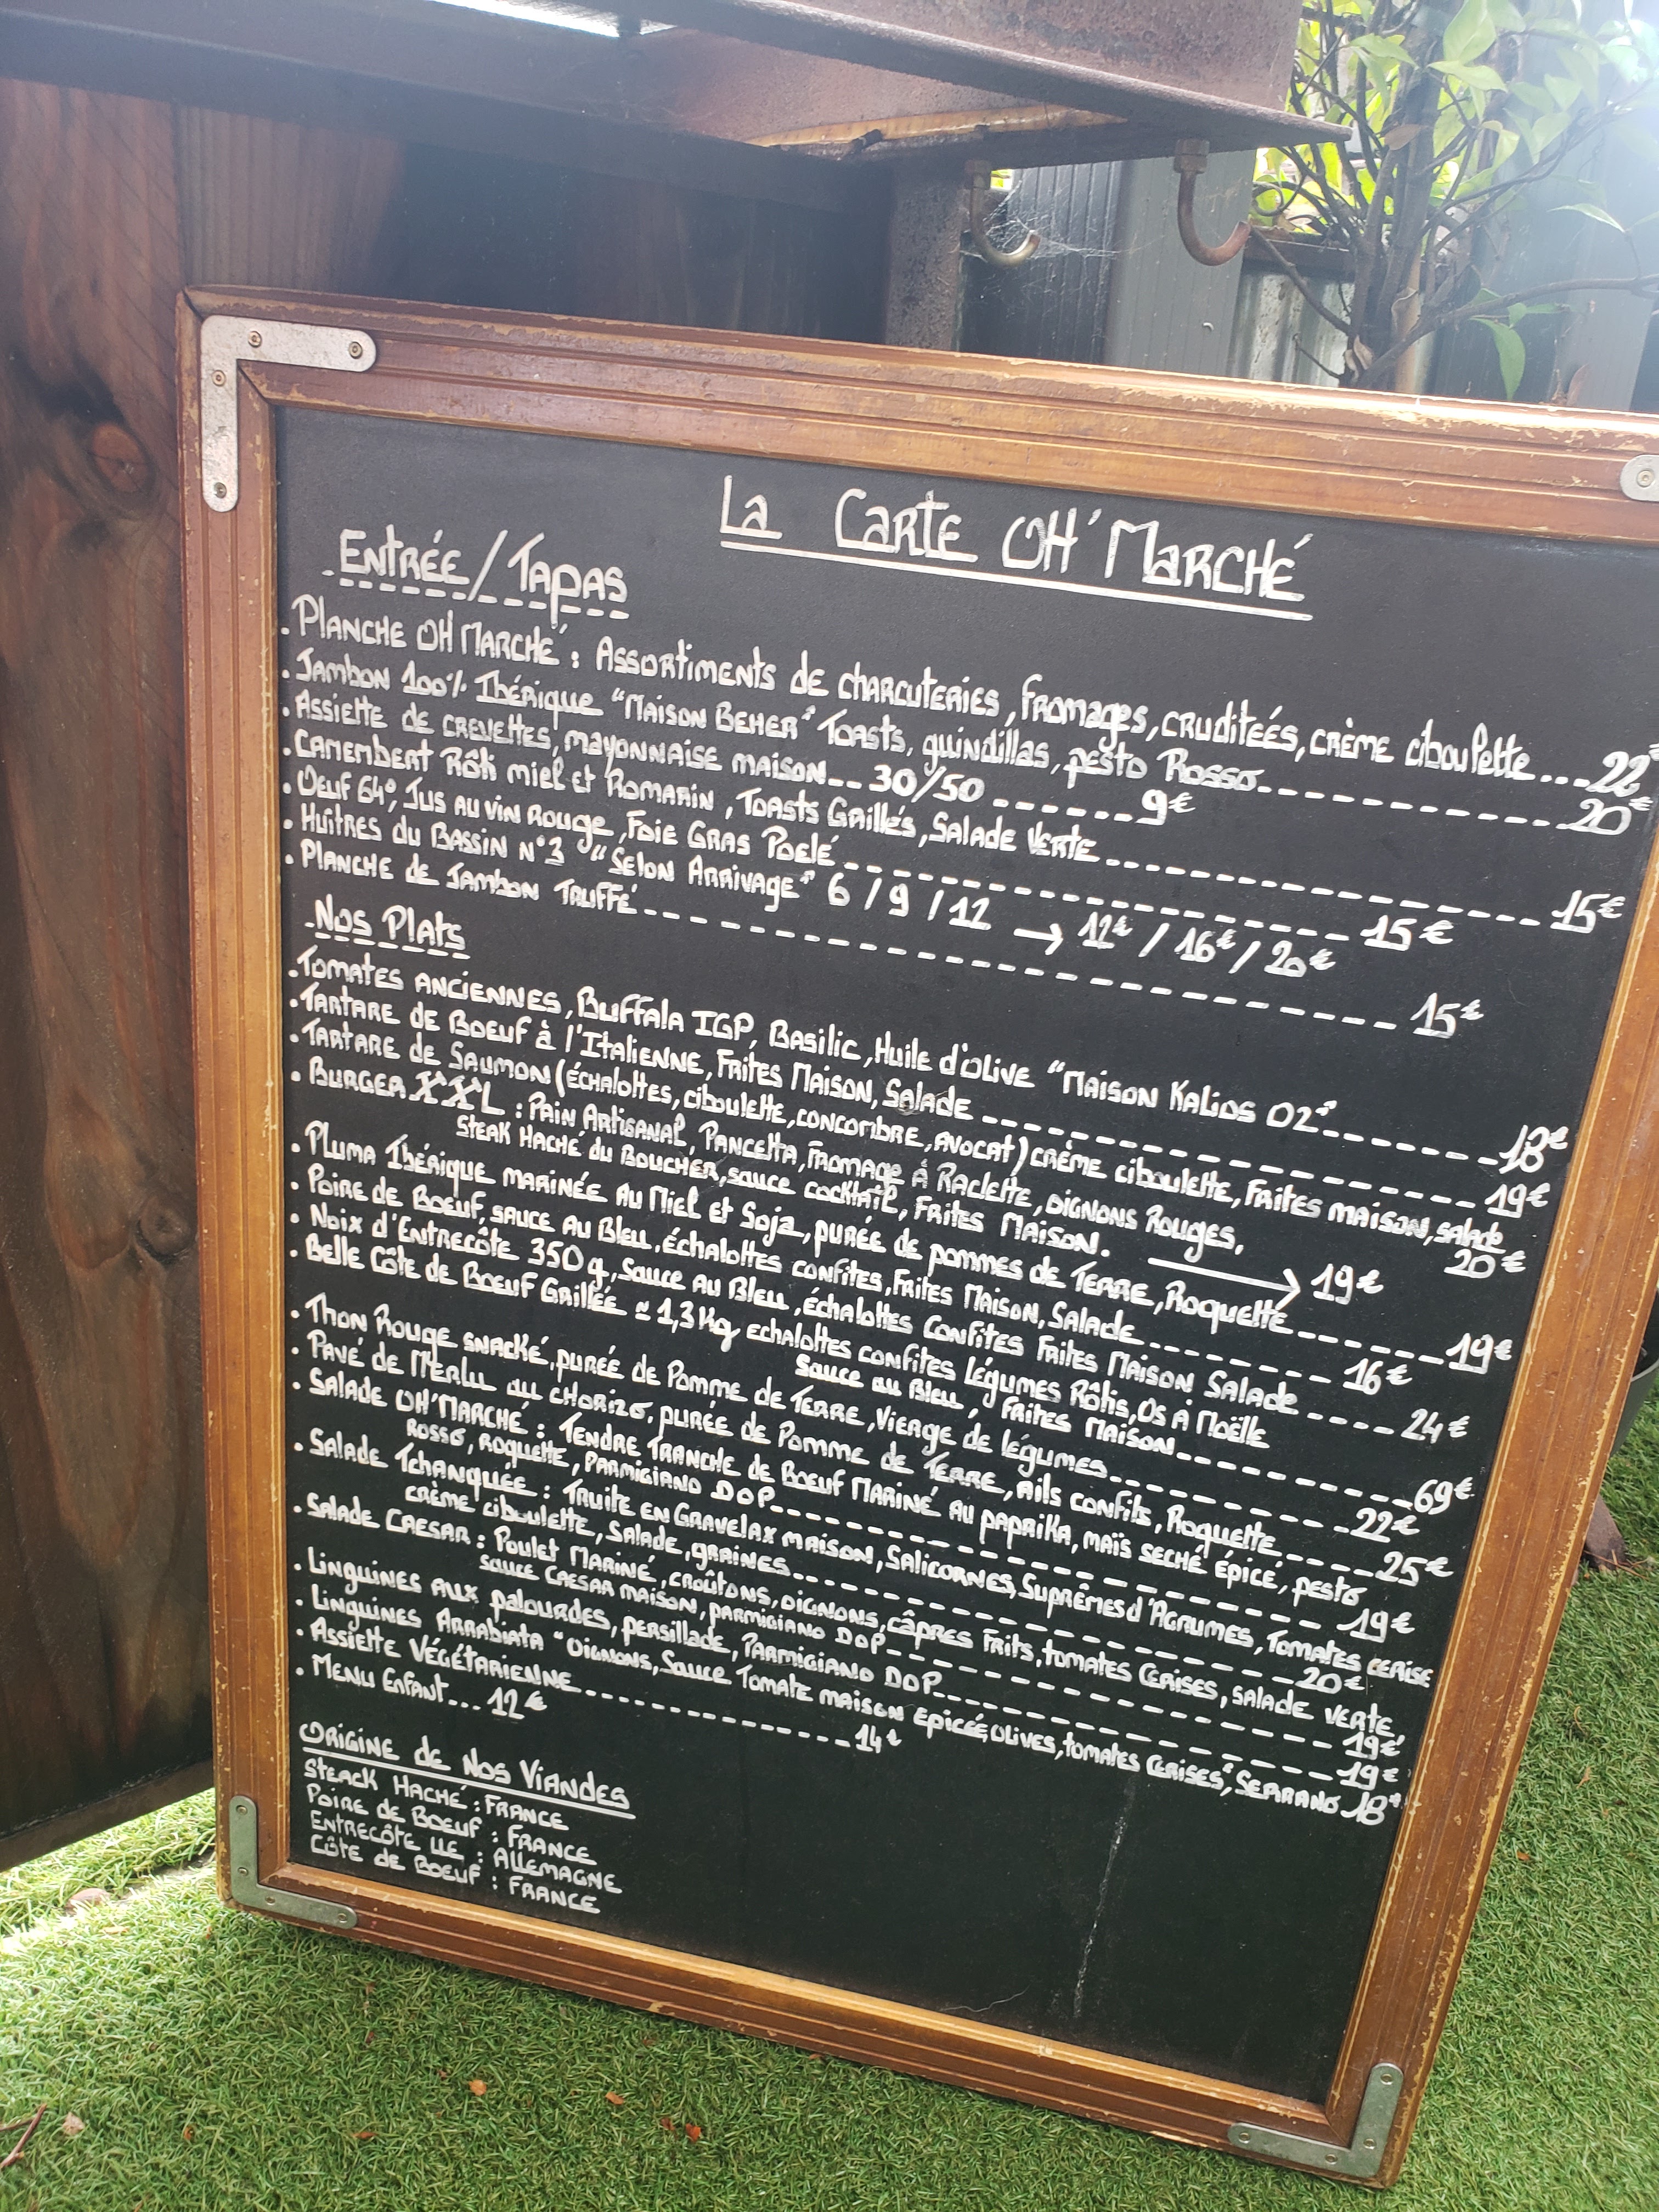 La Carte OH'Marché
Entrée/Tapas
. Planche OH Marché : Assortiments de charcuteries, fromages, cruditeés, crème ciboulette....22€
. Jambon 100% Ibérique "Maison Beher" Toasts, guindillas, pesto Rosso.----------20€
. Assiette de crevettes, mayonnaise maison... 30/50 ------9€
. Camembert Rôti miel et Romarin, Toasts Grillés, Salade Verte..------------15€
. Oeuf 64°, Jus au vin Rouge, Foie Gras Poelé.--------------15€
. Huîtres du Bassin n°3 "Selon Arrivage" 6 / 9 / 12 → 12€ / 16€ / 20€
. Planche de Jambon Truffé.--------------------15€
.Nos Plats
. Tomates anciennes, Buffala IGP, Basilic, Huile d'olive "Maison Kalios 02".------18€
. Tartare de Boeuf à l'Italienne, Frites Maison, Salade.--------------19€
. Tartare de Saumon (échalottes, ciboulette, concombre, avocat) crème ciboulette, Frites maison, salade
20€
. Burger XXL : Pain Artisanal, Pancetta, Fromage à Raclette, oignons Rouges,
Steak Haché du Boucher, sauce cocktail, Frites Maison. → 19€
. Pluma Ibérique marinée au Miel et Soja, purée de pommes de Terre, Roquette.------19€
. Poire de Boeuf, sauce au Bleu, échalottes confites, Frites Maison, Salade.-------16€
. Noix d'Entrecôte 350g, Sauce au Bleu, échalottes Confites Frites Maison Salade----24€
. Belle Côte de Boeuf Grillée ≃ 1,3 Kg echalottes confites légumes Rôtis, Os à Moëlle
Sauce au Bleu, Frites Maison.--------69€
. Thon Rouge snacké, purée de Pomme de Terre, Vierge de légumes.--------22€
. Pavé de Merlu au chorizo, purée de Pomme de Terre, ails confits, Roquette.----25€
. Salade OH'Marché : Tendre Tranche de Boeuf Mariné au paprika, maïs seché épicé, pesto
Rosso, Roquette, Parmigiano DOP.----------------19€
. Salade Tchanquée : Truite en Gravelax maison, Salicornes, Suprêmes d'Agrumes, Tomates cerise
crème ciboulette, Salade, graines.----------------20€
. Salade Caesar : Poulet Mariné, croûtons, oignons, câpres Frits, tomates Cerises, salade verte,
sauce Caesar maison, parmigiano DOP.--------------19€
. Linguines aux palourdes, persillade, Parmigiano DOP.------------19€
. Linguines Arrabiata "Oignons, Sauce Tomate maison Epicée, Olives, tomates Cerises", Serrano 18€
. Assiette Végétarienne.------------14€
. Menu Enfant.... 12€
Origine de Nos Viandes
Steack Haché : France
Poire de Boeuf : France
Entrecôte LLE : Allemagne
Côte de Boeuf : France